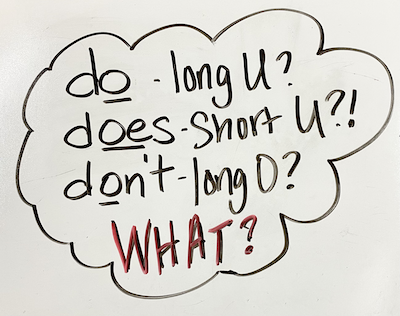 do - long U?
does - short U?!
don't - long O?
WHAT?